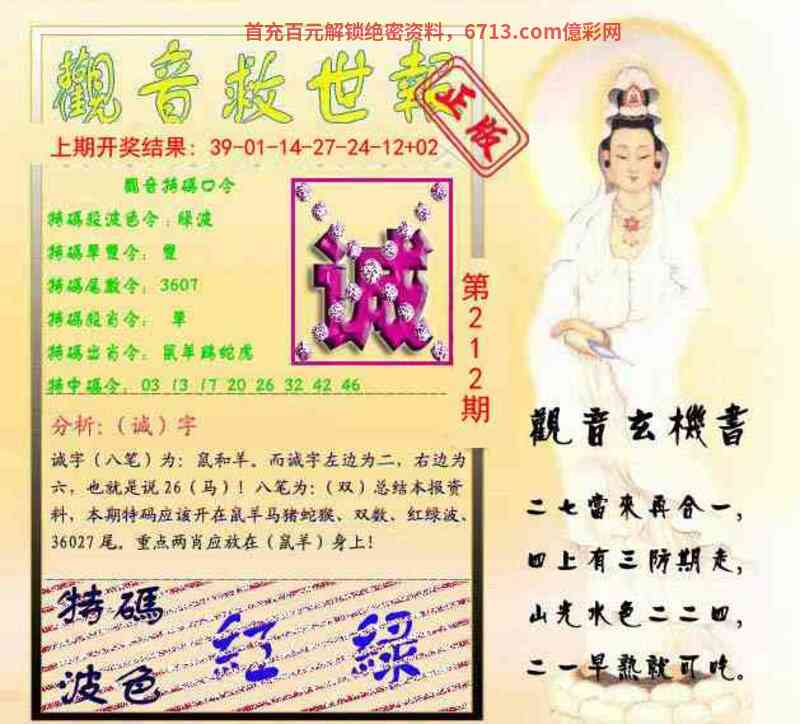 首充百元解锁绝密资料，6713.com億彩网
觀音救世報
正版
上期开奖结果：39-01-14-27-24-12+02
觀音特碼口令
特碼殺波色令：綠波
特碼單雙令：雙
特碼尾數令：3607
特碼殺肖令： 單
特碼出肖令：鼠羊鷄蛇虎
特中碼令：03 13 17 20 26 32 42 46
诚
第212期
分析:（诚）字
诚字（八笔）为：鼠和羊。而诚字左边为二，右边为
六，也就是说26（马）！八笔为：（双）总结本报资
料，本期特码应该开在鼠羊马猪蛇猴、双数、红绿波、
36027尾。重点两肖应放在（鼠羊）身上！
特碼
波色
紅 綠
觀音玄機書
二七當來再合一，
四上有三防期走，
山光水色二二四，
二一早熟就可吃。